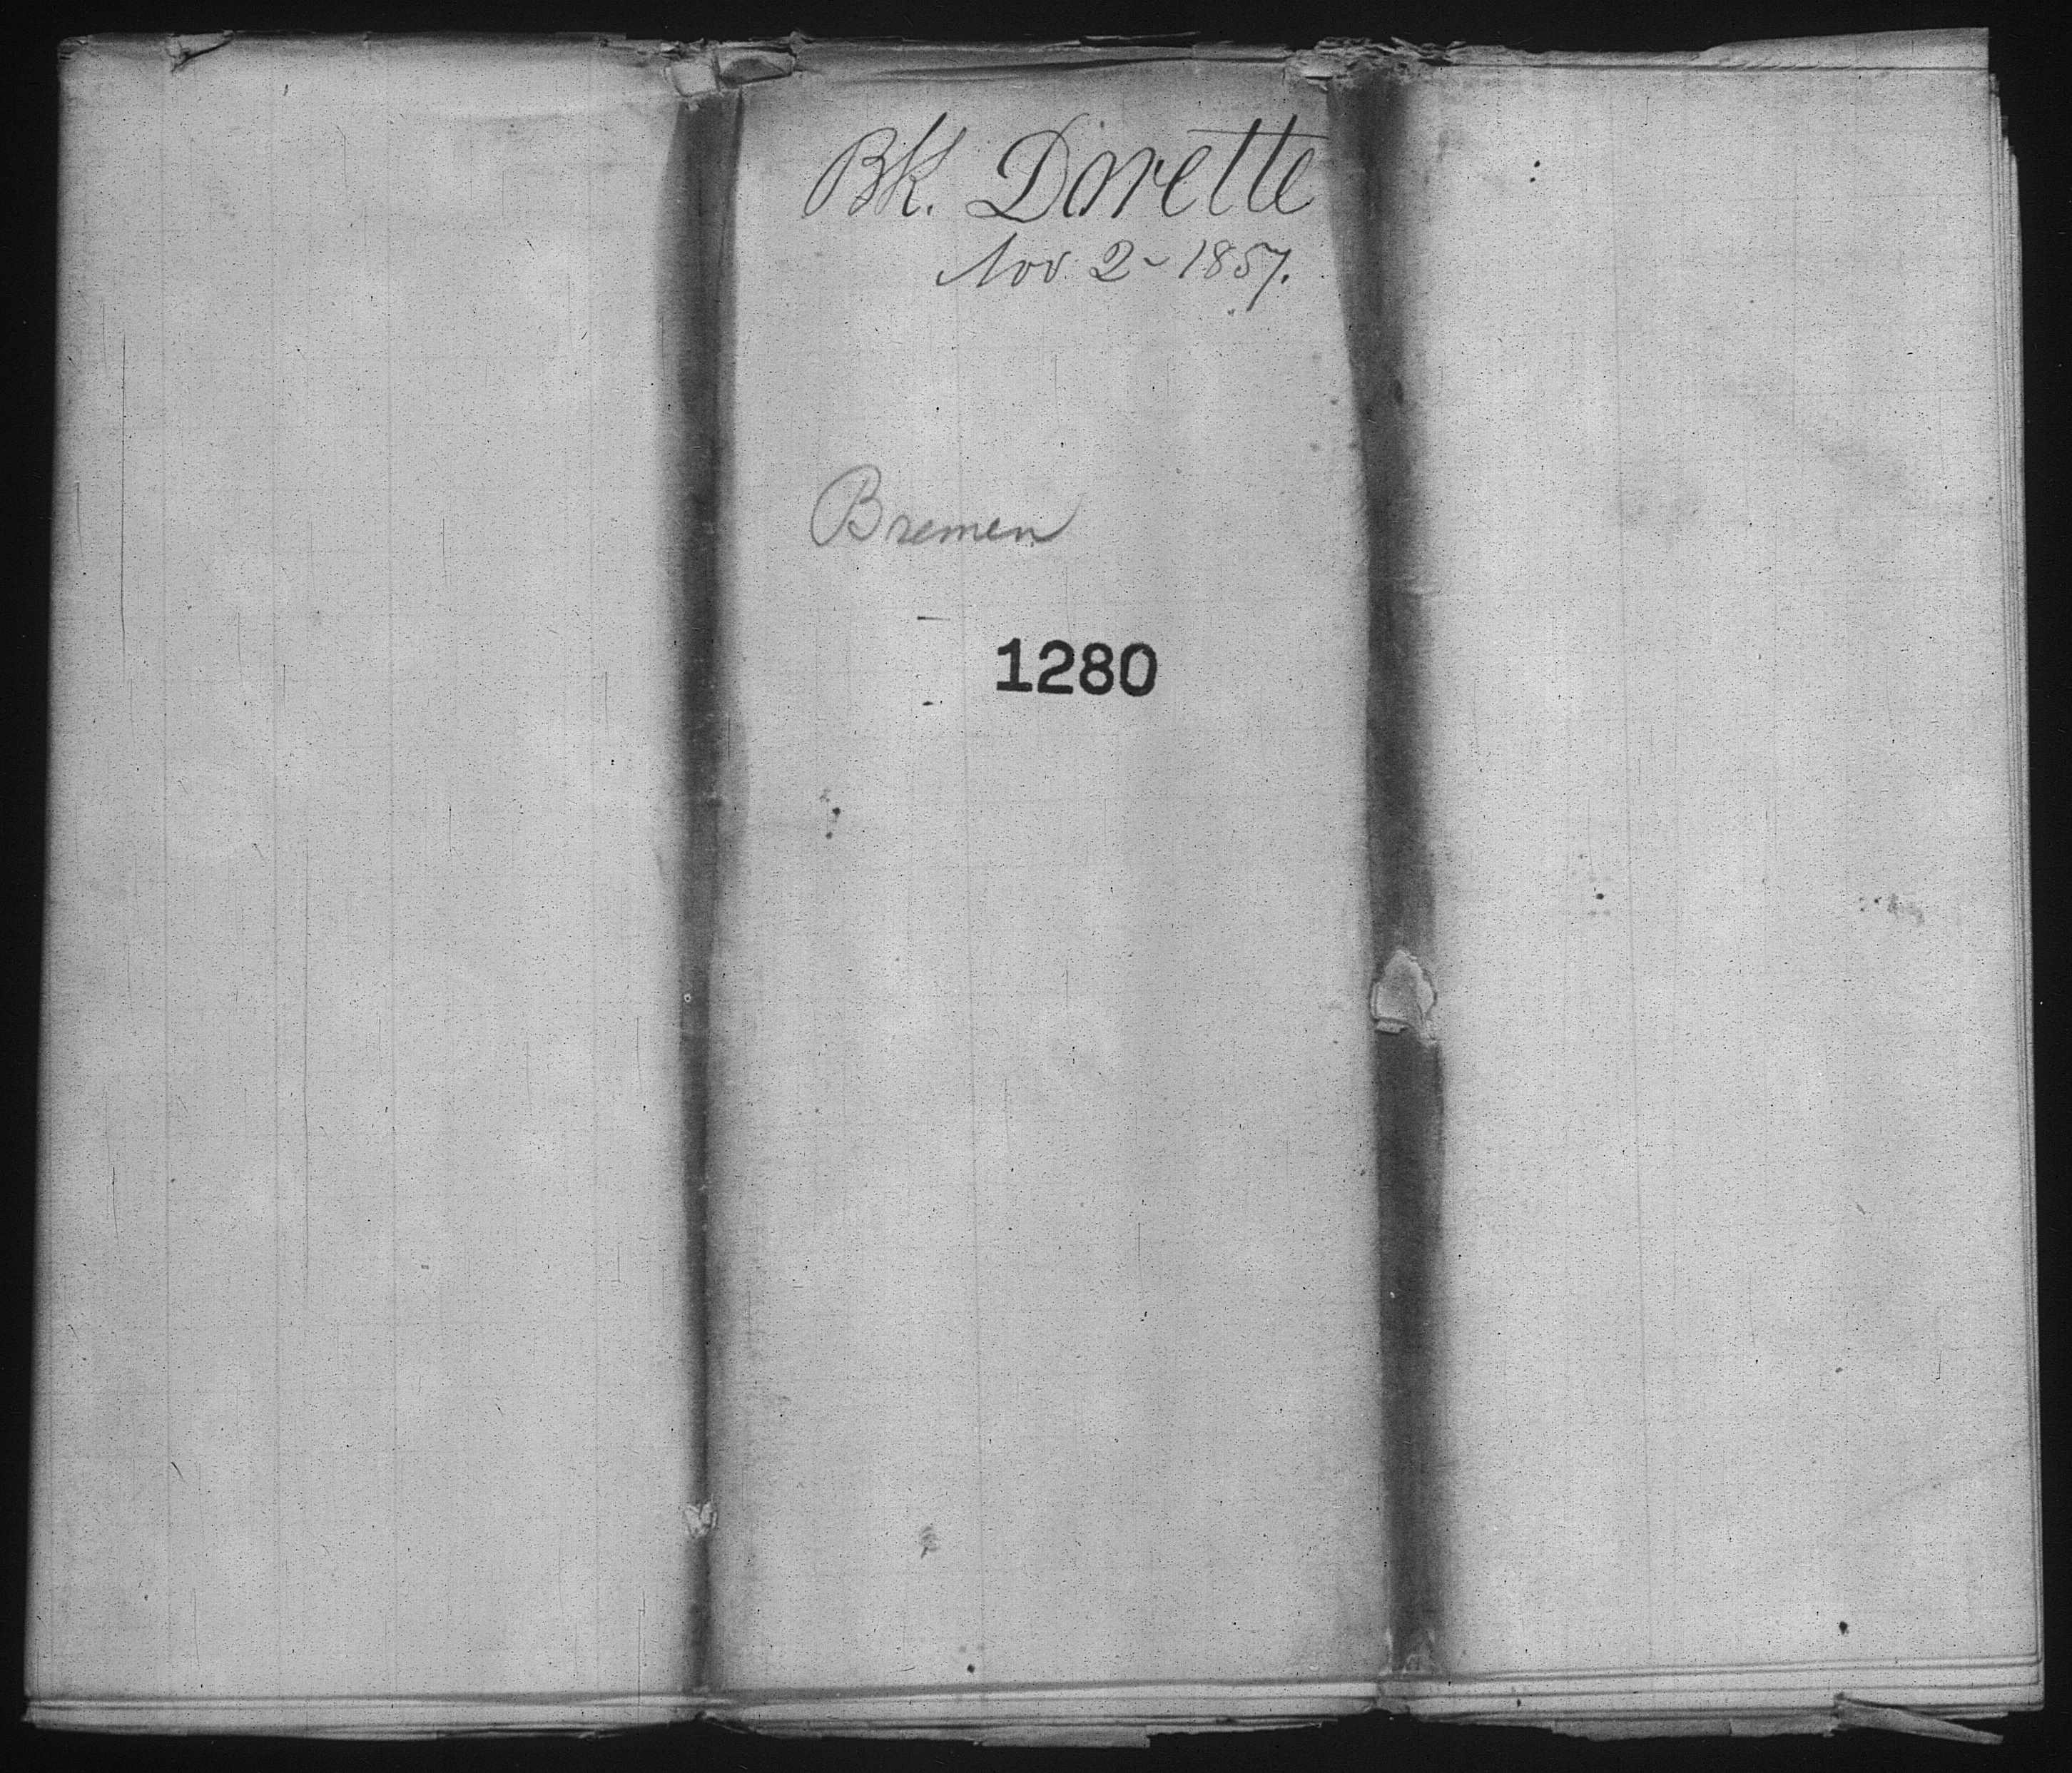 Bk. Dorette
Nov 2 - 1857.
Bremen
1280